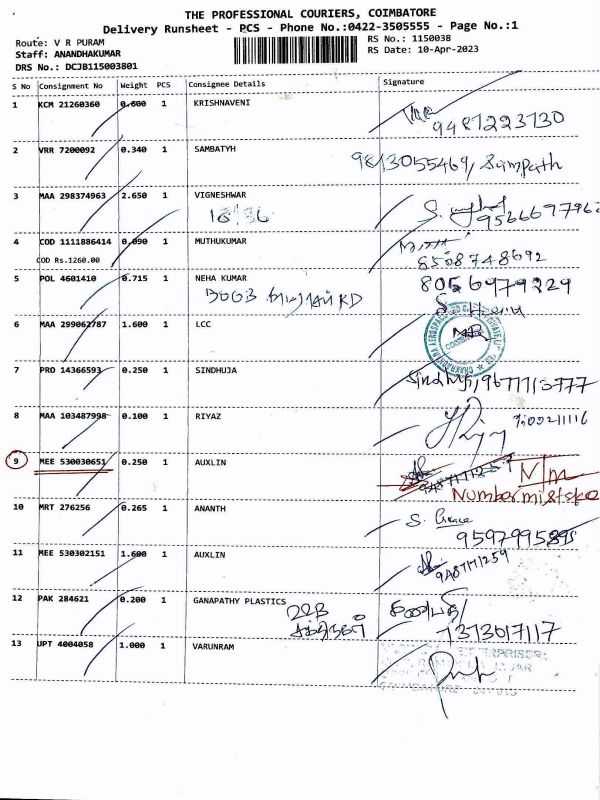 THE PROFESSIONAL COURIERS, COIMBATORE
Delivery Runsheet - PCS - Phone No.:0422-3505555 - Page No.:1
Route: V R PURAM
RS No.: 1150038
Staff: ANANDHAKUMAR
RS Date: 10-Apr-2023
DRS No.: DCJB115003801
S No Consignment No Weight PCS Consignee Details Signature
1 KCM 21260360 0.600 1 KRISHNAVENI
9487223730
2 VRR 7200092 0.340 1 SAMBATYH
9813055469, Sampath
3 MAA 298374963 2.650 1 VIGNESHWAR
18:36
4 COD 1111886414 0.090 1 MUTHUKUMAR
COD Rs.1260.00
8508748692
5 POL 4601410 0.715 1 NEHA KUMAR
8056979229
6 MAA 299062787 1.600 1 LCC
7 PRO 14366593 0.250 1 SINDHUJA
8 MAA 103487998 0.100 1 RIYAZ
9 MEE 530030651 0.250 1 AUXLIN
Number mistake
10 MRT 276256 0.265 1 ANANTH
11 MEE 530302151 1.600 1 AUXLIN
9487171259
12 PAK 284621 0.200 1 GANAPATHY PLASTICS
கணபதி/
7373017117
13 UPT 4004058 1.000 1 VARUNRAM